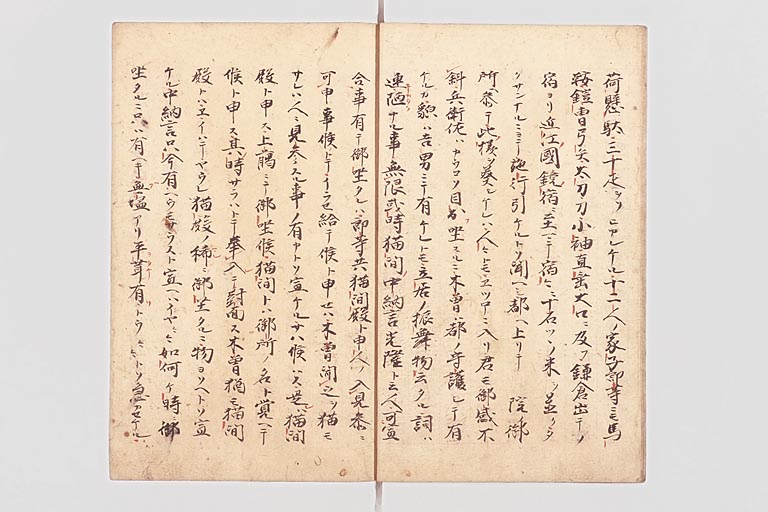 荷懸駄三十疋ソヒカレケル十二人ノ家子郎等ニモ馬
鞍鎧曺弓矢太刀刀小袖直垂大口ニ及フ鎌倉出テノ
宿ヨリ近江國鏡宿ニ至マテ宿々ニ十石ツヽノ米ソ並
施行引ケルトソ聞ヘシ都ヘ上リテ 院御
所ヘ参テ此様ヲ奏シケレハ入レ君モ御感不
斜兵衛佐ハカウコソ目出坐スルニ木曽ハ都ノ守護シテ有
ケルカ貌ハ吉男ニテ有ケレトモ立居ノ振舞物云タル詞ハ
連 ナル事無限或時猫間中納言光隆ト云人可宣
合事有テ御坐タレハ郎等共猫間殿ト申人ノ入見参ニ
可申事候トテイラセ給テ候ト申セハ木曽聞之ソ猫モ
サレハ人ニ見参スル事ノ有カトソ宣ケルサハ候ハス是ハ猫間
殿ト申ス上﨟ニテ御坐候猫間トハ御所ノ名ト覚ヘテ
候ト申ス其時サラハトテ奉入テ對面ス木曽猶モ猫間
殿トハエイハテヤウレ猫殿ノ稀ニ御坐タルニ物ヨソヘトソ宣
ケル中納言只今有ヘウモサラスト宣ヘハイヤ々々如何ケ時ニ御
坐タルニ只ハ有ヘキ無塩アリ平茸有トウ々々トソ急カセケル